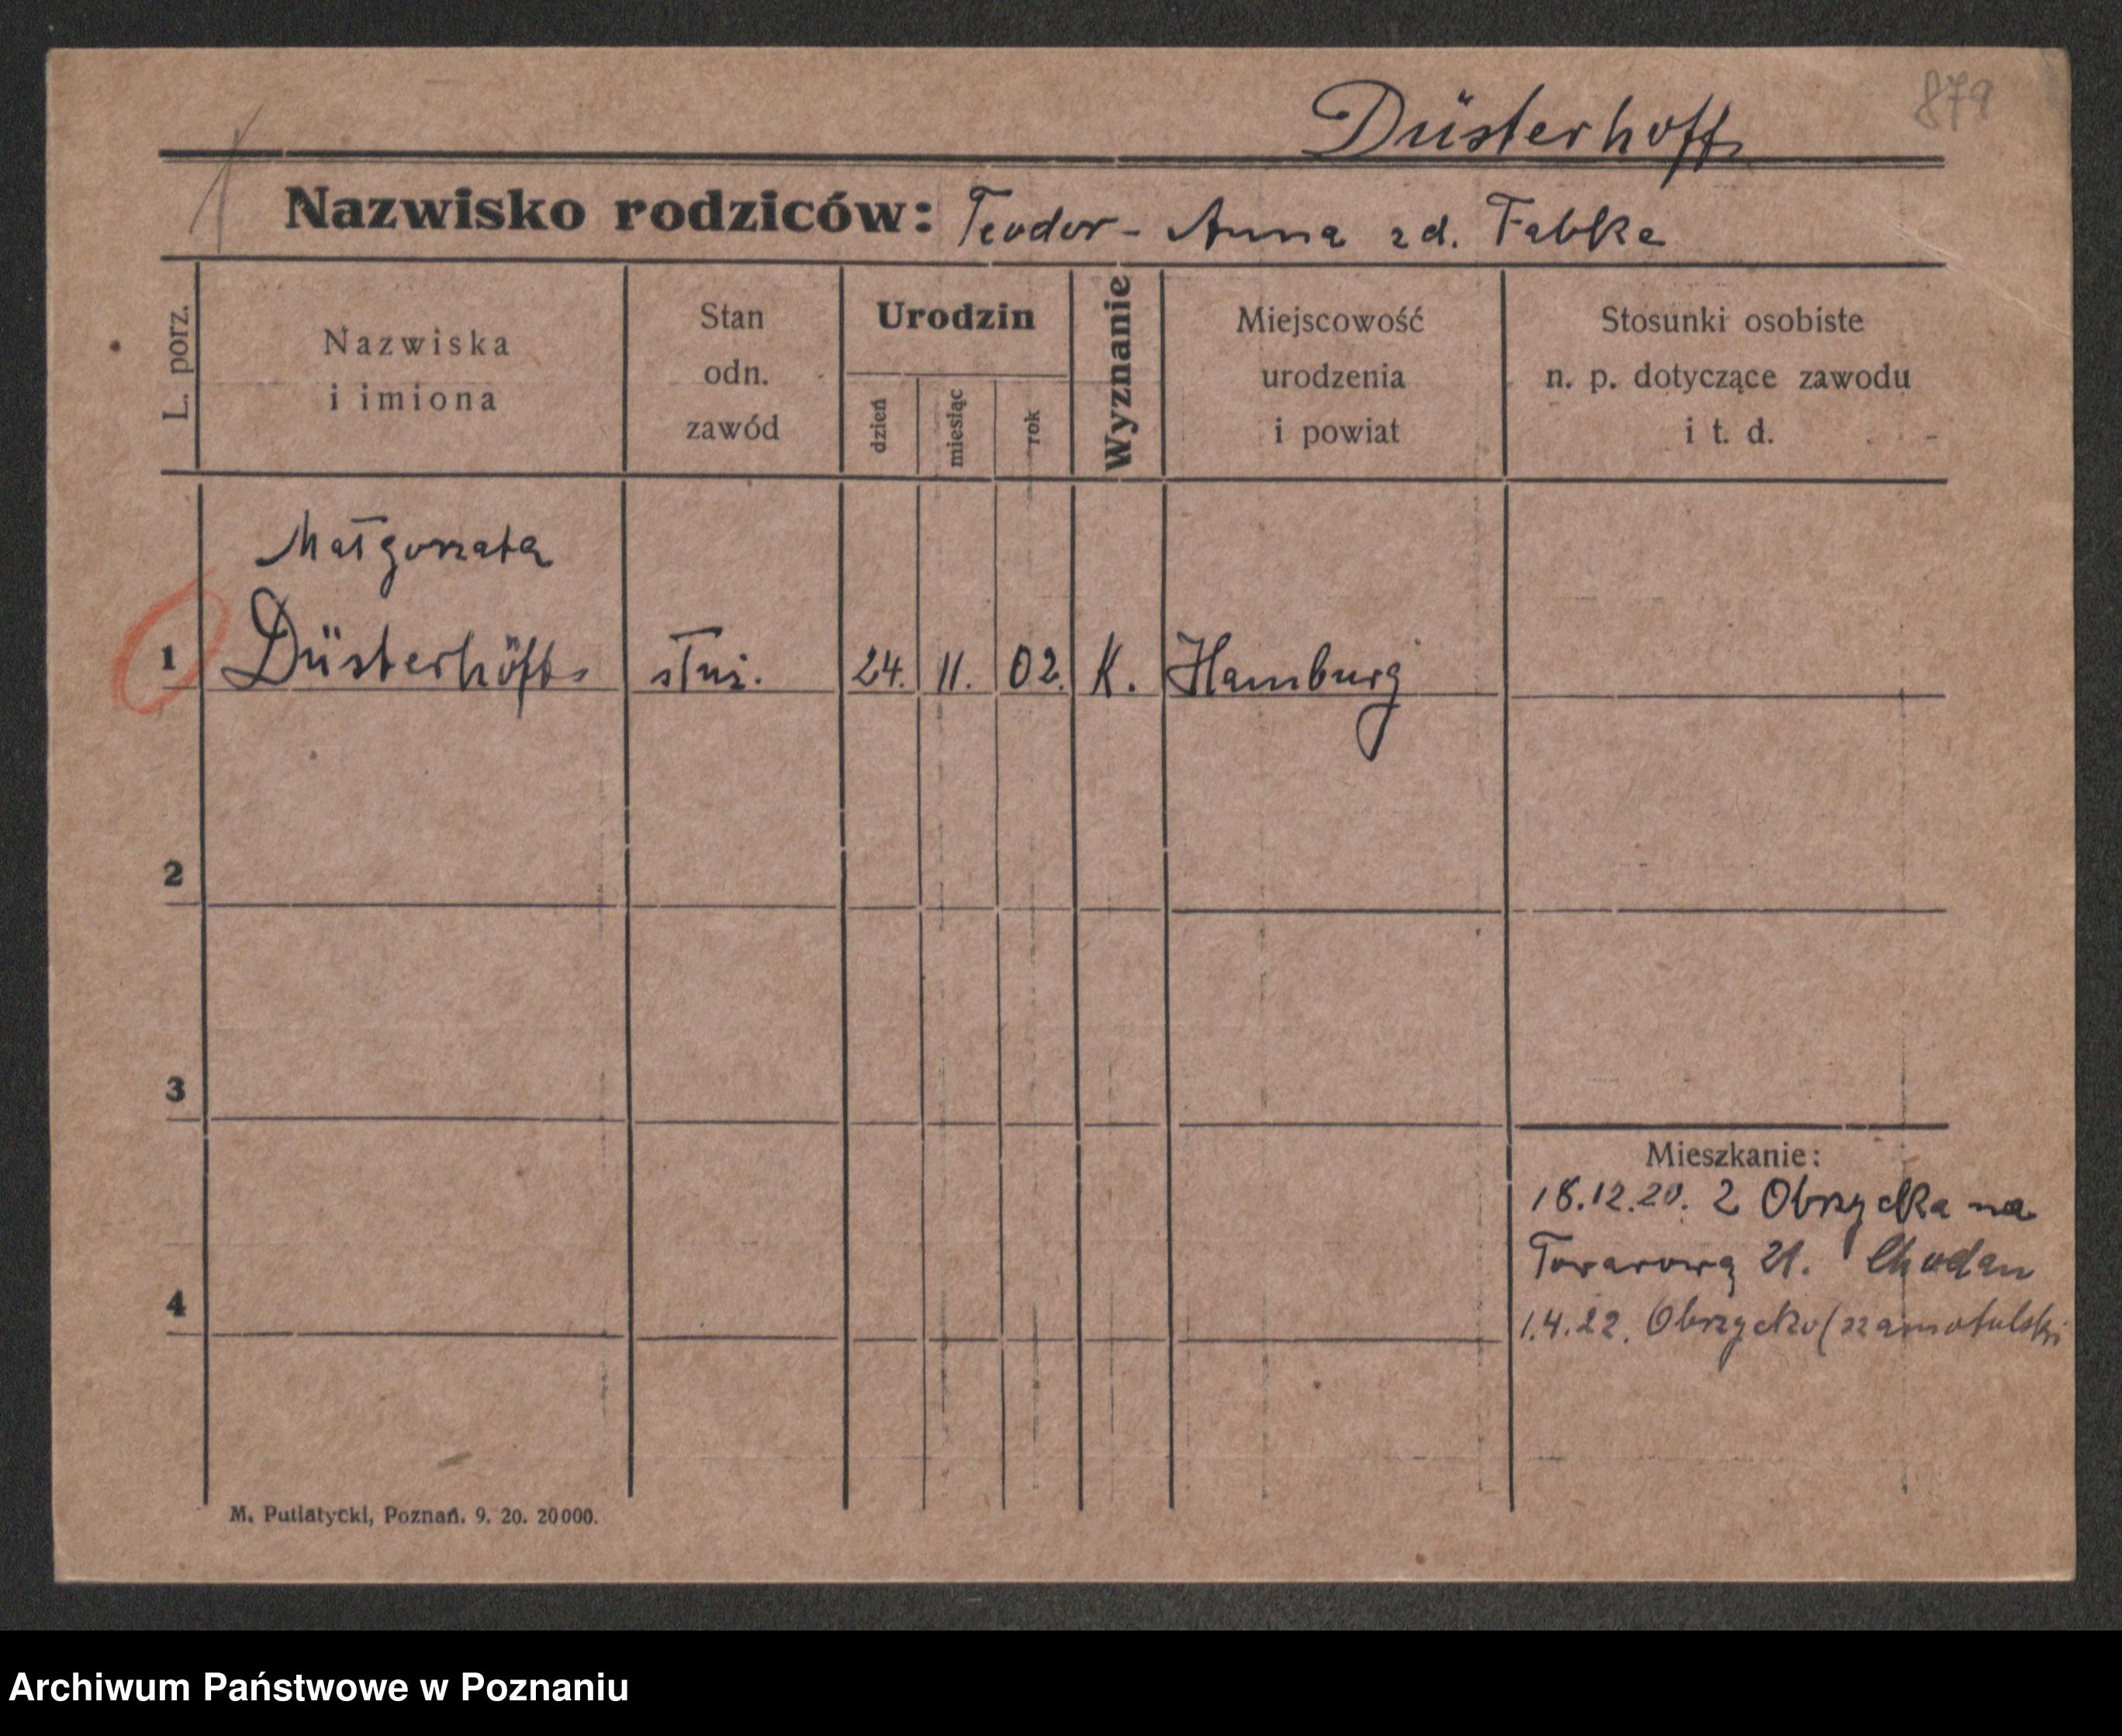 879
Düsterhöft
Nazwisko rodziców: Teodor - Anna zd. Fabka
L. porz.
Nazwiska
i imiona
Stan
odn.
zawód
Urodzin
dzień
miesiąc
rok
Wyznanie
Miejscowość
urodzenia
i powiat
Stosunki osobiste
n. p. dotyczące zawodu
i t. d.
Małgorzata
1 Düsterhöft służ. 24. 11. 02. K. Hamburg
2
3
Mieszkanie:
18.12.20. z Obrzycka na
Towarową 21. Chodan
4
1.4.22. Obrzycko (szamotulski
M. Putiatycki, Poznań. 9. 20. 20000.
Archiwum Państwowe w Poznaniu